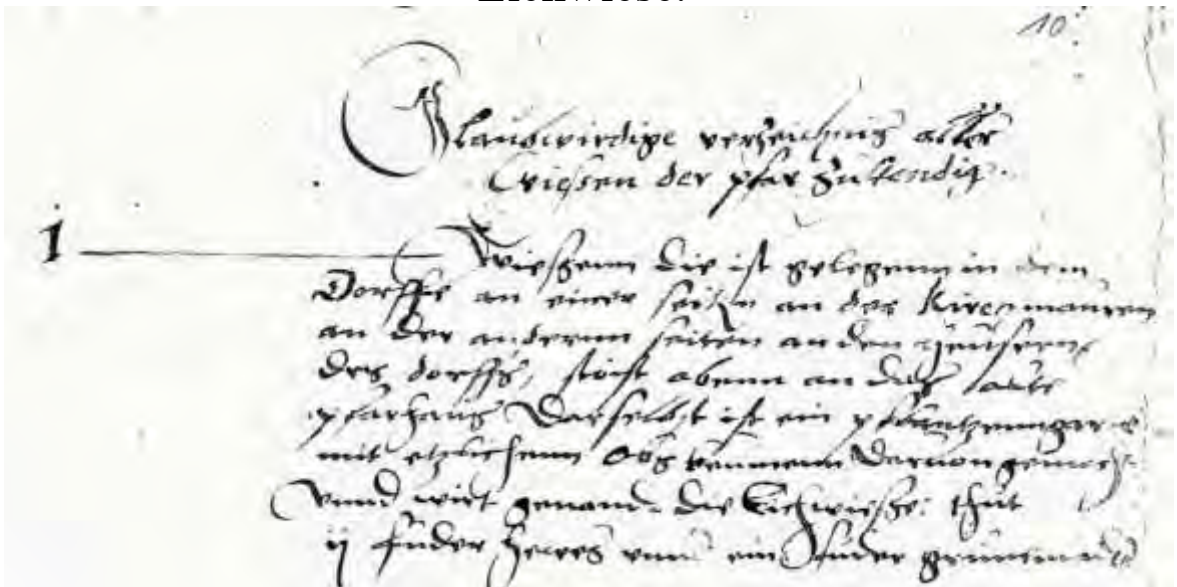 10.
Glaubwirdige verzeichnis aller
Wiessen der pfar zu Lendig.
1 Wieszenn die ist gelegenn in dem
Dorffe an einer seiten an der Kirchmauren
an der anderenn seiten an den heusern
des dorffs, stöst abenn an das alte
pfarhaus Darselbst ist ein
mit etzlichenn Obs beumenn daruon gemacht
vnnd wirt genand die Eichwiesze: thut
ij fuder Hewes vnnd ein fuder